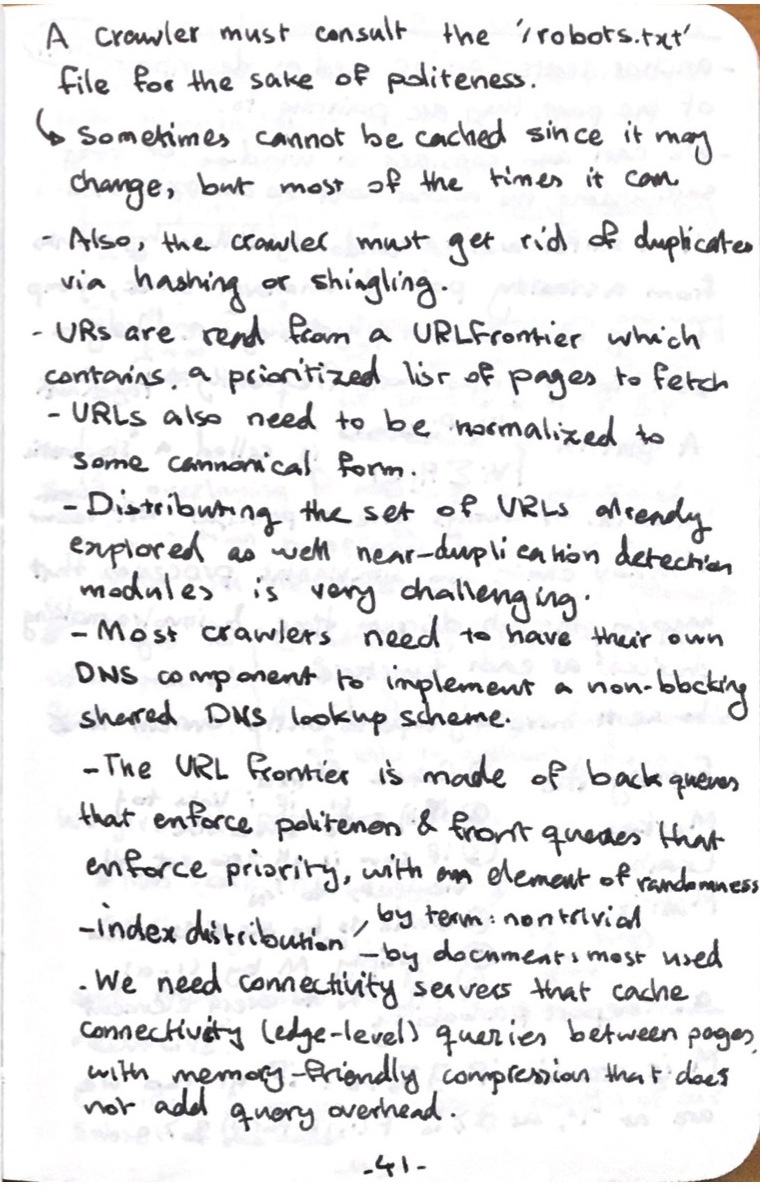 A crawler must consult the '/robots.txt'
file for the sake of politeness.
↳ Sometimes cannot be cached since it may
change, but most of the times it can
- Also, the crawler must get rid of duplicates
via hashing or shingling.
- URs are read from a URLFrontier which
contains a prioritized list of pages to fetch
- URLs also need to be normalized to
some cannonical form.
- Distributing the set of URLs already
explored as well near-duplication detection
modules is very challenging.
- Most crawlers need to have their own
DNS component to implement a non-blocking
shared DNS lookup scheme.
- The URL frontier is made of back queues
that enforce politeness & front queues that
enforce priority, with an element of randomness
- index distribution / by term: nontrivial
- by document: most used
. We need connectivity servers that cache
connectivity (edge-level) queries between pages,
with memory-friendly compression that does
not add query overhead.
-41-